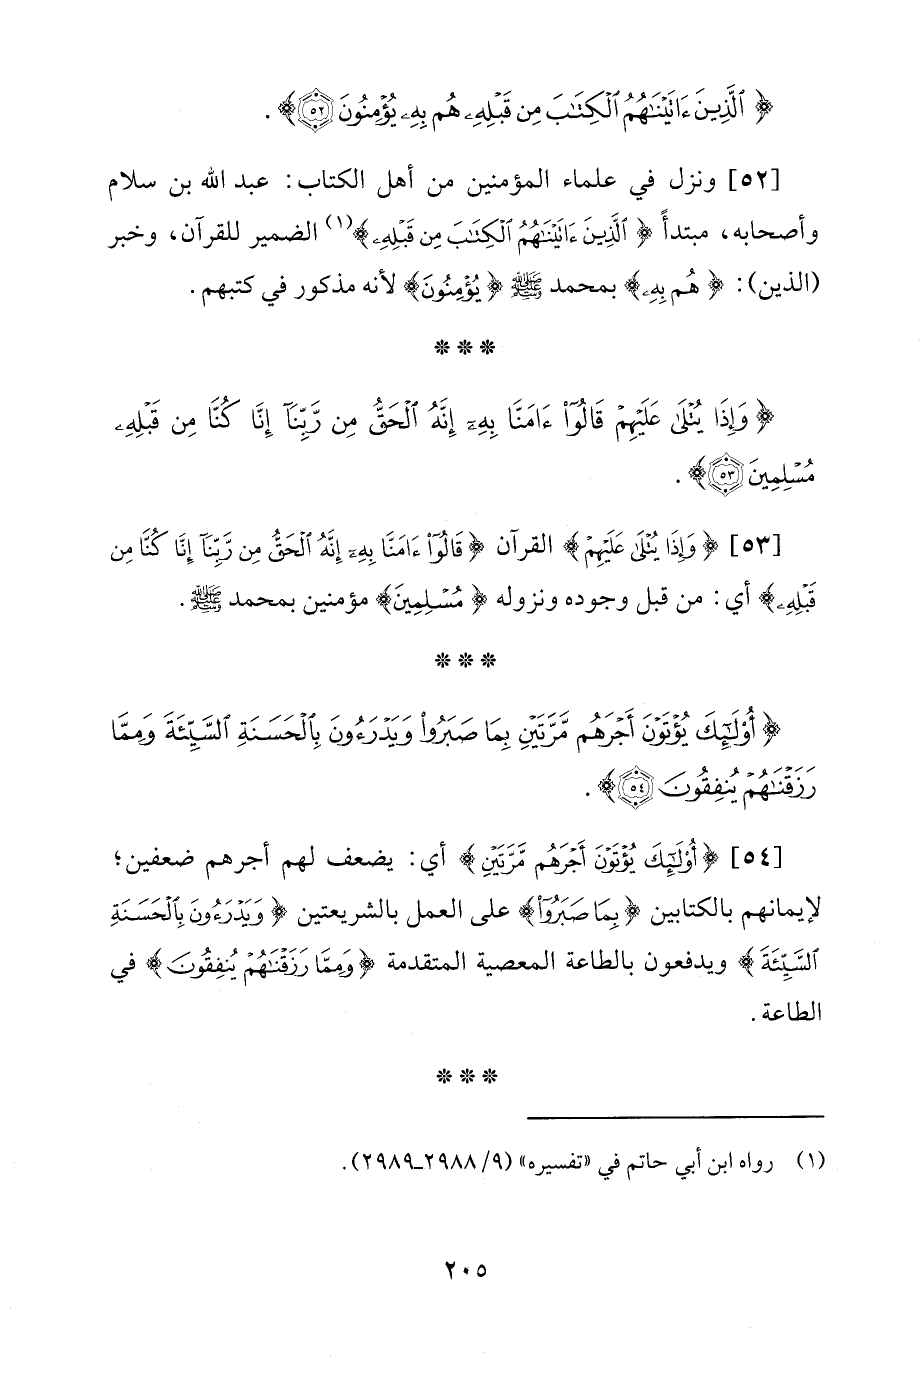 ﴿ ٱلَّذِينَ ءَاتَيْنَٰهُمُ ٱلْكِتَٰبَ مِن قَبْلِهِۦ هُم بِهِۦ يُؤْمِنُونَ ۝٥٢﴾ .
[٥٢] ونزل في علماء المؤمنين من أهل الكتاب: عبد الله بن سلام
وأصحابه، مبتدأً ﴿ ٱلَّذِينَ ءَاتَيْنَٰهُمُ ٱلْكِتَٰبَ مِن قَبْلِهِۦ﴾(١) الضمير للقرآن، وخبر
(الذين): ﴿ هُم بِهِۦ﴾ بمحمد ﷺ ﴿ يُؤْمِنُونَ﴾ لأنه مذكور في كتبهم .
* * *
﴿ وَإِذَا يُتْلَىٰ عَلَيْهِمْ قَالُوٓا۟ ءَامَنَّا بِهِۦٓ إِنَّهُ ٱلْحَقُّ مِن رَّبِّنَآ إِنَّا كُنَّا مِن قَبْلِهِۦ
مُسْلِمِينَ ۝٥٣﴾ .
[٥٣] ﴿ وَإِذَا يُتْلَىٰ عَلَيْهِمْ ﴾ القرآن ﴿ قَالُوٓا۟ ءَامَنَّا بِهِۦٓ إِنَّهُ ٱلْحَقُّ مِن رَّبِّنَآ إِنَّا كُنَّا مِن
قَبْلِهِۦ﴾ أي: من قبل وجوده ونزوله ﴿ مُسْلِمِينَ﴾ مؤمنين بمحمد ﷺ .
* * *
﴿ أُو۟لَٰٓئِكَ يُؤْتَوْنَ أَجْرَهُم مَّرَّتَيْنِ بِمَا صَبَرُوا۟ وَيَدْرَءُونَ بِٱلْحَسَنَةِ ٱلسَّيِّئَةَ وَمِمَّا
رَزَقْنَٰهُمْ يُنفِقُونَ ۝٥٤﴾ .
[٥٤] ﴿ أُو۟لَٰٓئِكَ يُؤْتَوْنَ أَجْرَهُم مَّرَّتَيْنِ ﴾ أي: يضعف لهم أجرهم ضعفين؛
لإيمانهم بالكتابين ﴿ بِمَا صَبَرُوا۟﴾ على العمل بالشريعتين ﴿ وَيَدْرَءُونَ بِٱلْحَسَنَةِ
ٱلسَّيِّئَةَ ﴾ ويدفعون بالطاعة المعصية المتقدمة ﴿ وَمِمَّا رَزَقْنَٰهُمْ يُنفِقُونَ ﴾ في
الطاعة .
* * *
(١) رواه ابن أبي حاتم في «تفسيره» (٩/ ٢٩٨٨ـ٢٩٨٩).
٢٠٥